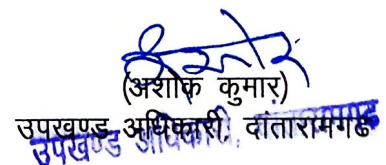 (अशोक कुमार)
उपखण्ड अधिकारी, दांतारामगढ
उपखण्ड अधिकारी,